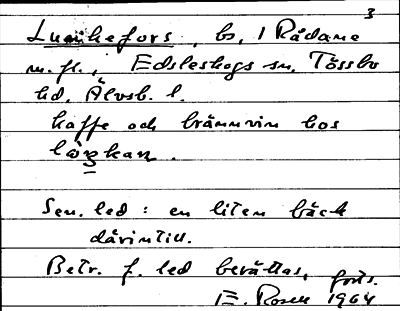 3
Lunkefors, bs, 1 Rådane
m. fl., Edsleskogs sn, Tössbo
hd, Älvsb. l.
kaffe och brännvin hos
lågkan.
Sen. led : en liten bäck
därintill.
Betr. f. led berättas, forts.
E. Rosell 1964